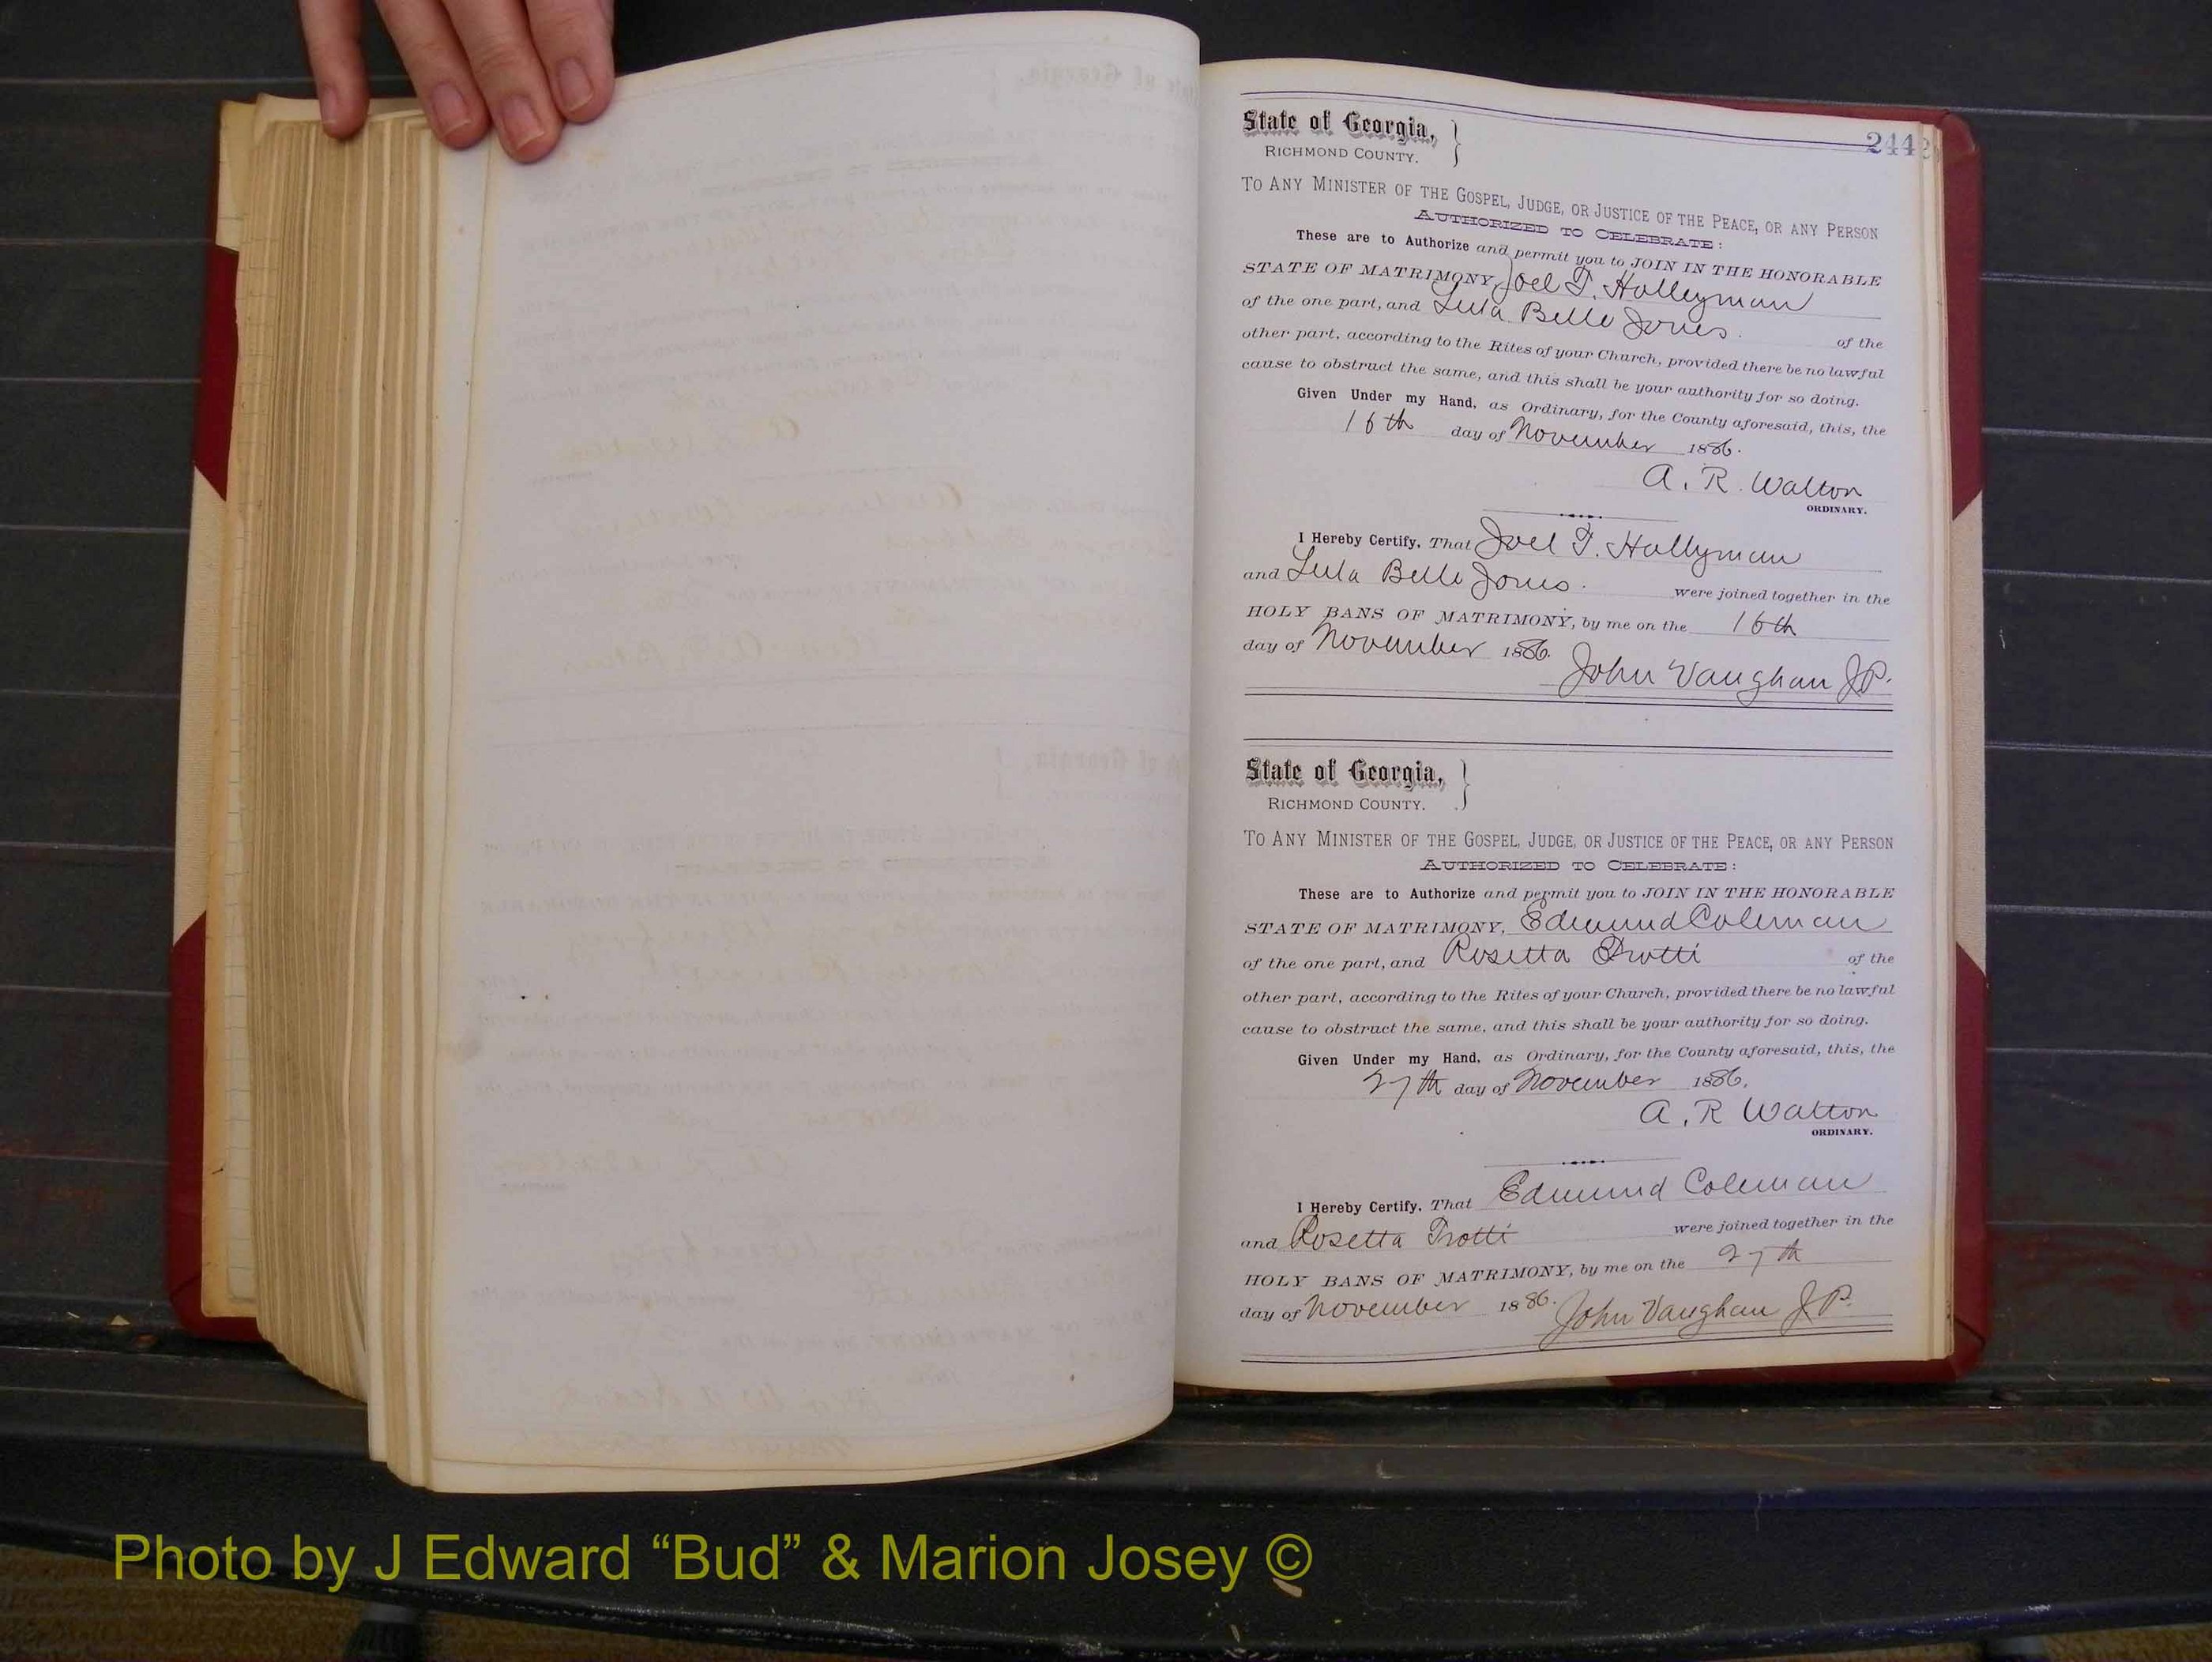 244
State of Georgia,
RICHMOND COUNTY.
TO ANY MINISTER OF THE GOSPEL, JUDGE, OR JUSTICE OF THE PEACE, OR ANY PERSON
AUTHORIZED TO CELEBRATE:
These are to Authorize and permit you to JOIN IN THE HONORABLE
STATE OF MATRIMONY, Joel T. Holleyman
of the one part, and Lula Belle Jones. of the
other part, according to the Rites of your Church, provided there be no lawful
cause to obstruct the same, and this shall be your authority for so doing.
Given Under my Hand, as Ordinary, for the County aforesaid, this, the
16th day of November 1886.
A. R. Walton
ORDINARY.
I Hereby Certify, That Joel T. Hollyman
and Lula Belle Jones. were joined together in the
HOLY BANS OF MATRIMONY, by me on the 16th
day of November 1886. John Vaughan J.P.
State of Georgia,
RICHMOND COUNTY.
TO ANY MINISTER OF THE GOSPEL, JUDGE, OR JUSTICE OF THE PEACE, OR ANY PERSON
AUTHORIZED TO CELEBRATE:
These are to Authorize and permit you to JOIN IN THE HONORABLE
STATE OF MATRIMONY, Edmund Coleman
of the one part, and Rosetta Trotti of the
other part, according to the Rites of your Church, provided there be no lawful
cause to obstruct the same, and this shall be your authority for so doing.
Given Under my Hand, as Ordinary, for the County aforesaid, this, the
27th day of November 1886.
A. R Walton
ORDINARY.
I Hereby Certify, That Edmund Coleman
and Rosetta Trotti were joined together in the
HOLY BANS OF MATRIMONY, by me on the 27th
day of November 1886. John Vaughan J.P.
Photo by J Edward “Bud” & Marion Josey ©